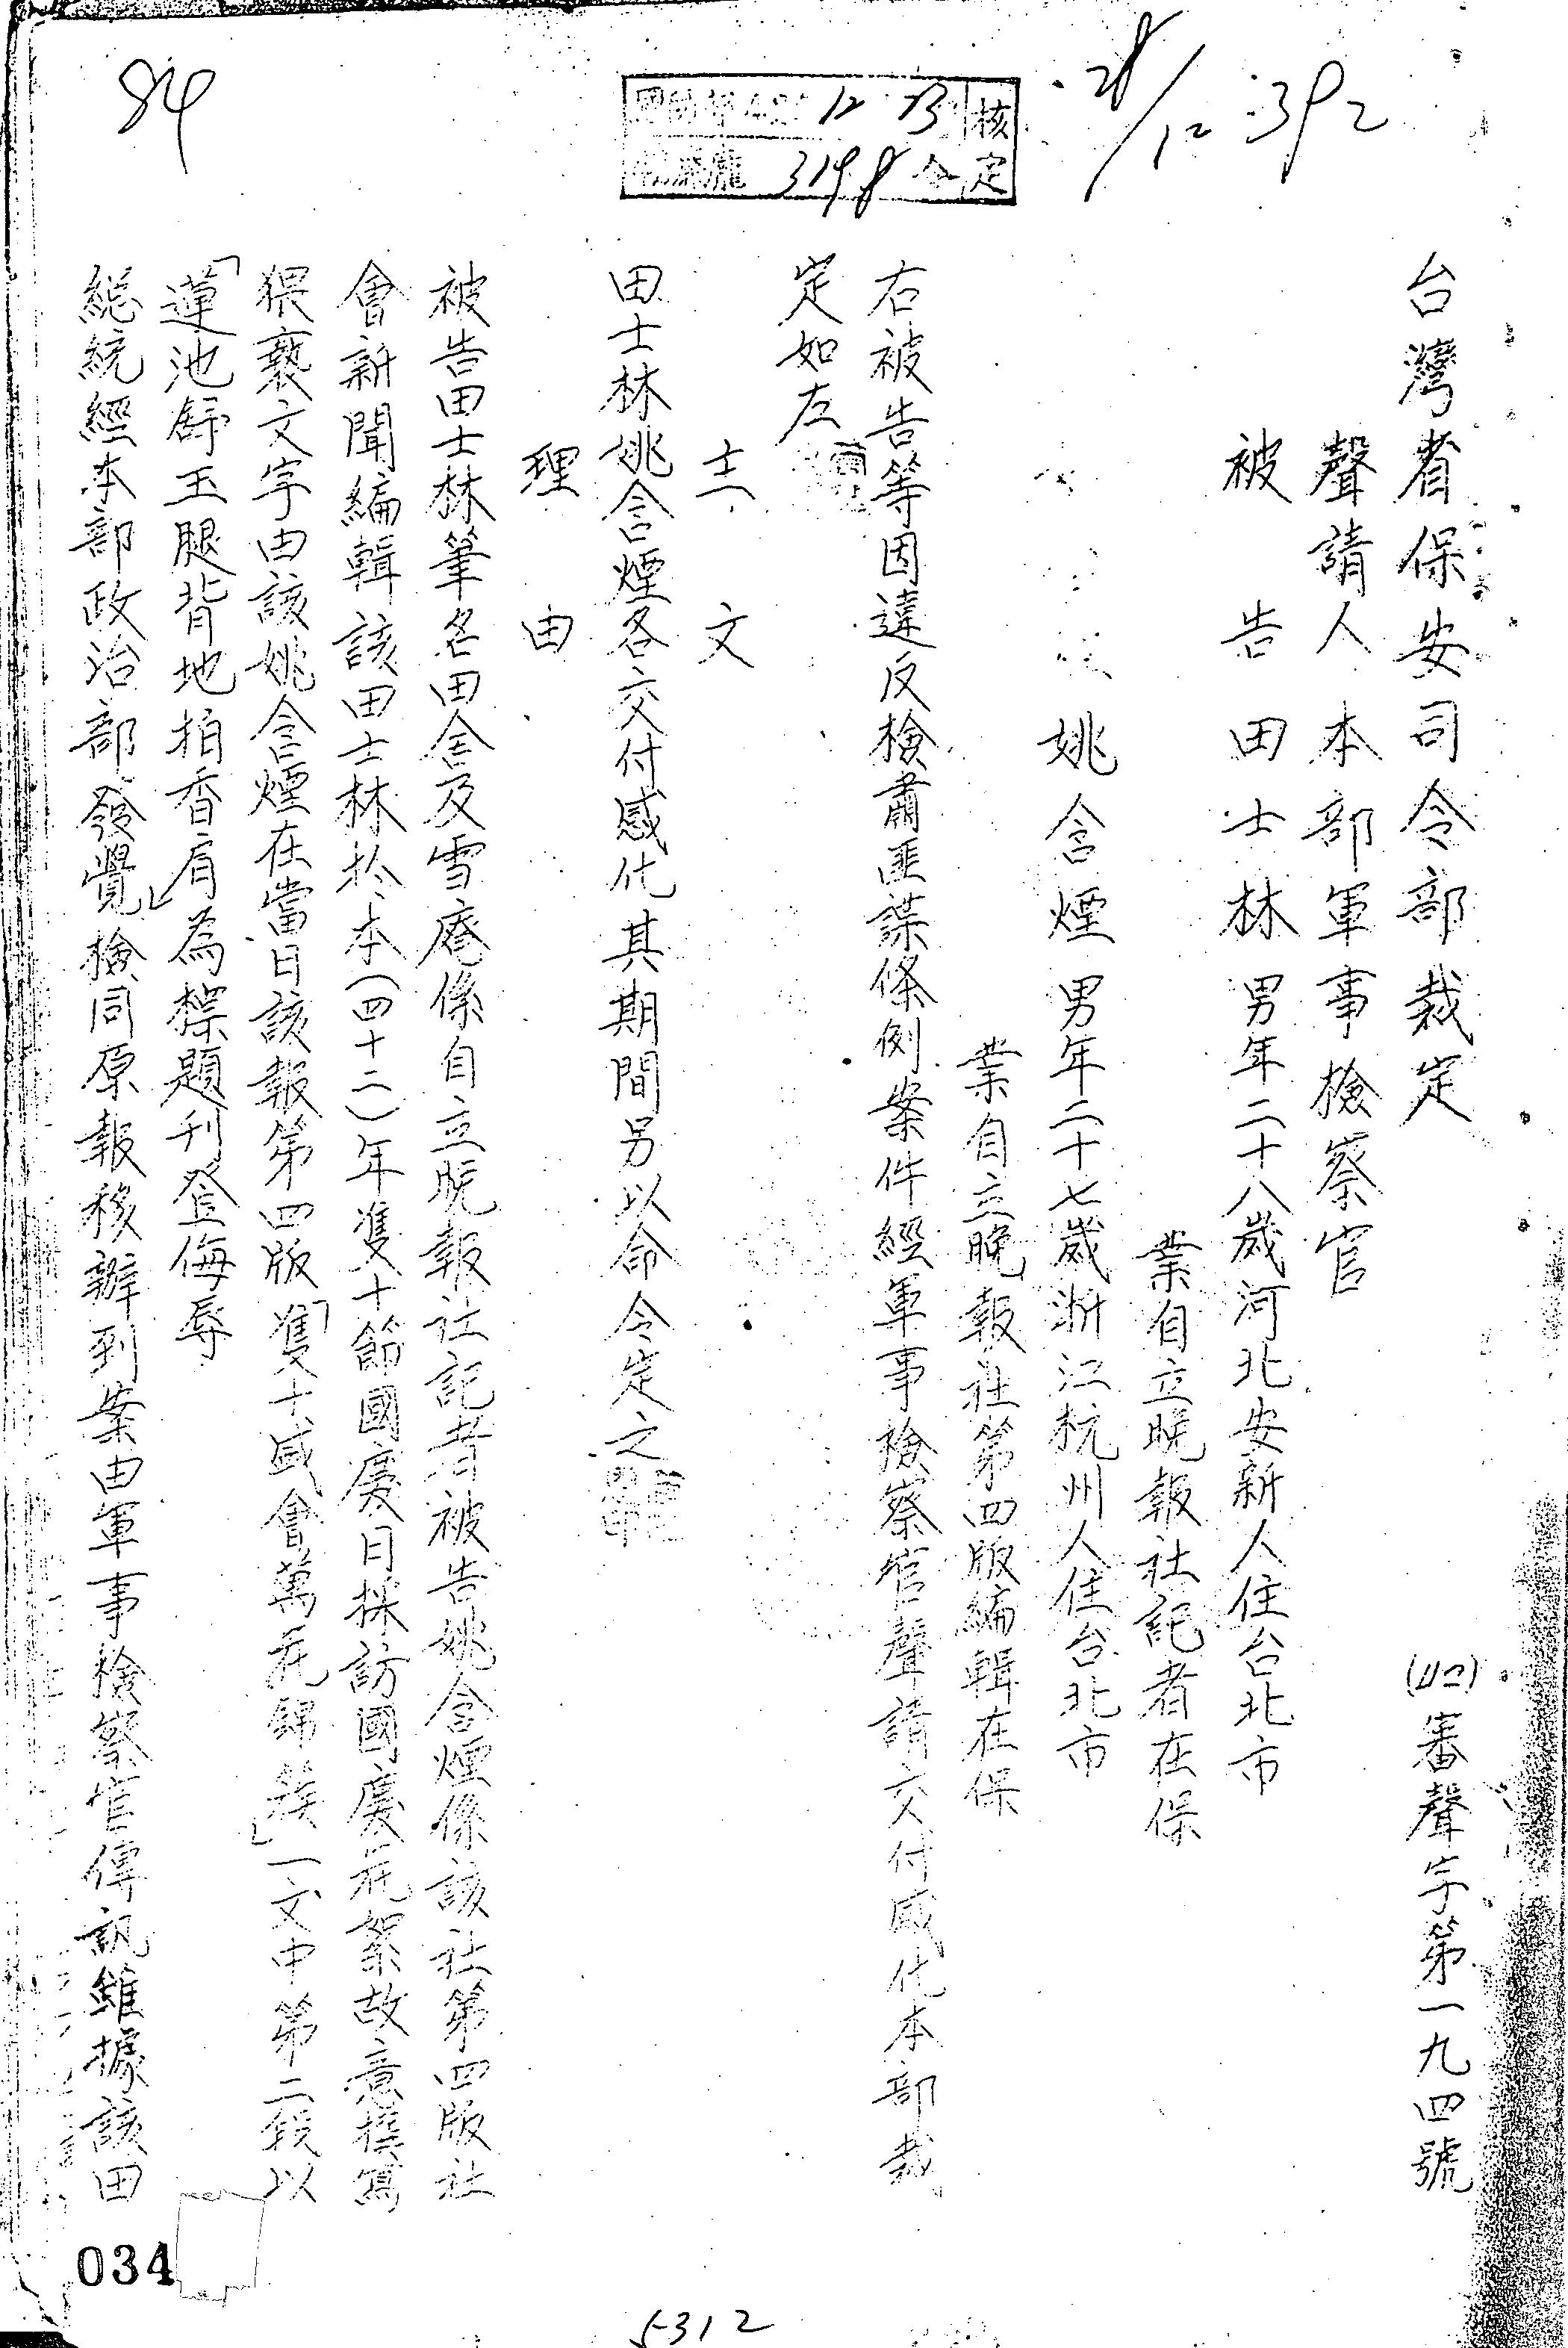 84
核定
12 13
3198 令
28/12 392
台灣省保安司令部裁定
(42)審聲字第一九四號
聲請人本部軍事檢察官
被告田士林男年二十八歲河北安新人住台北市
業自立晚報社記者在保
姚含煙男年二十七歲浙江杭州人住台北市
業自立晚報社第四版編輯在保
右被告等因違反檢肅匪諜條例案件經軍事檢察官聲請交付感化本部裁
定如左
主文
田士林姚含煙各交付感化其期間另以命令定之
理由
被告田士林筆名田舍及雪庵係自立晚報社記者被告姚含煙係該社第四版社
會新聞編輯該田士林於本(四十二)年雙十節國慶日採訪國慶花絮故意撰寫
猥褻文字由該姚含煙在當日該報第四版「雙十盛會萬花錦簇」一文中第二段以
「蓮池舒玉腿背地拍香肩」為標題刊登侮辱
總統經本部政治部發覺檢同原報移辦到案由軍事檢察官傳訊雖據該田
034
5312